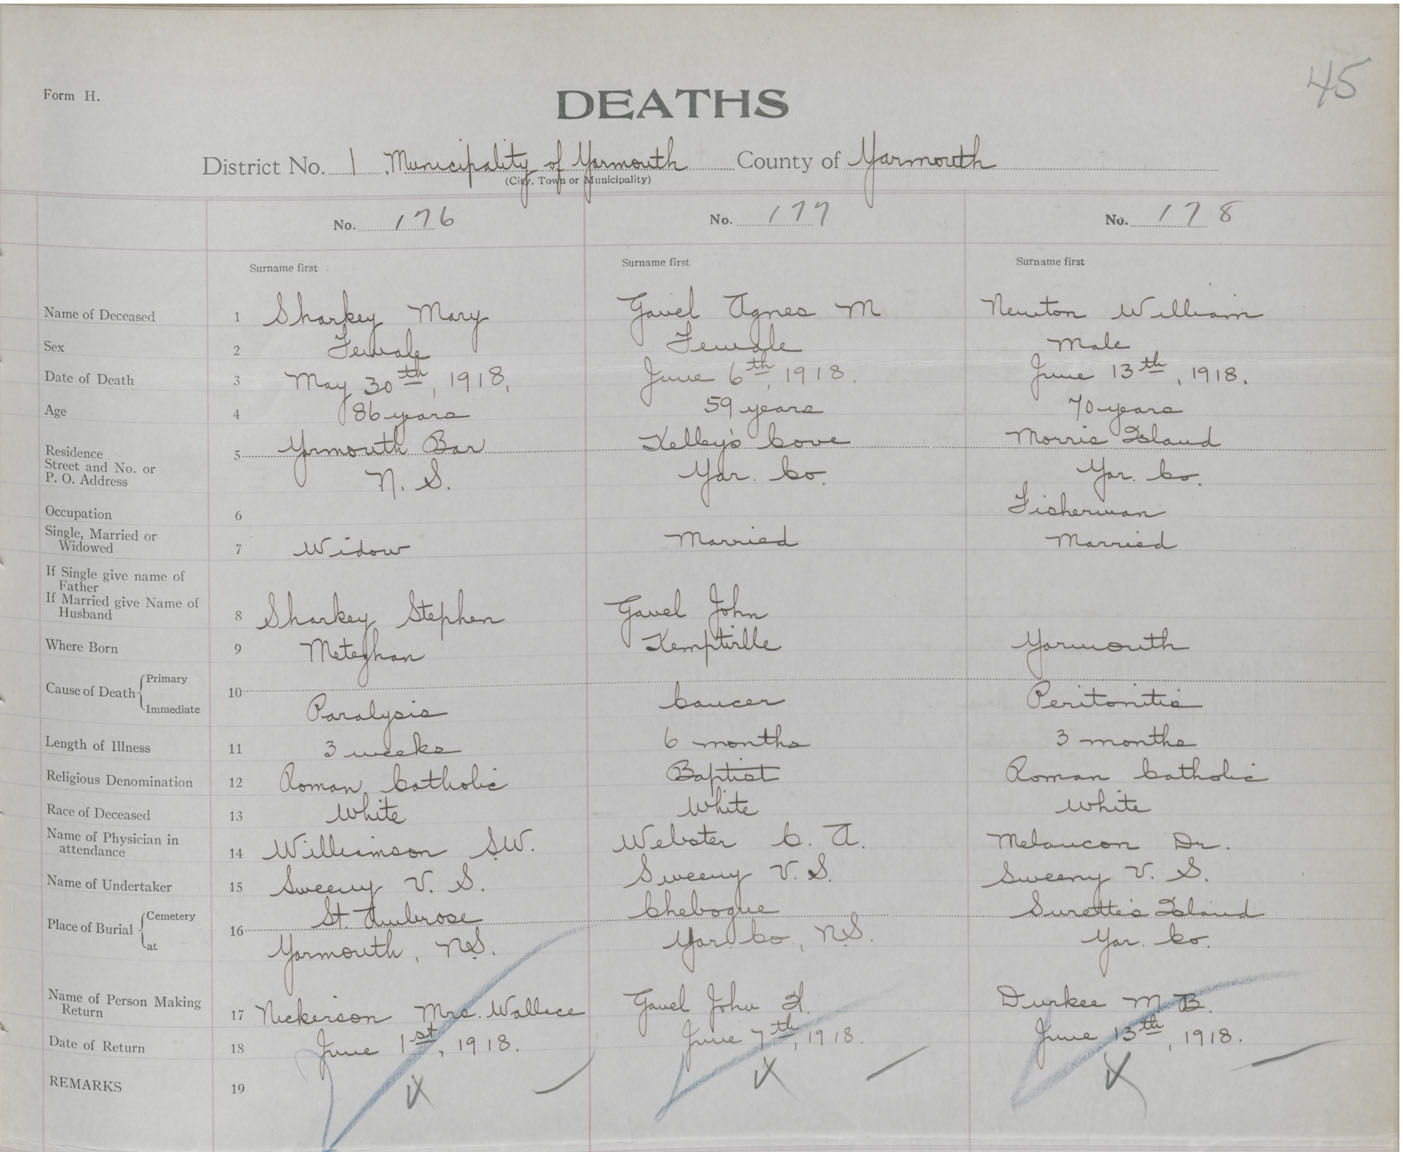 45
Form H.
DEATHS
District No. 1, Municipality of Yarmouth County of Yarmouth
(City, Town or Municipality)
No. 176 No. 177 No. 178
Surname first Surname first Surname first
Name of Deceased 1 Sharkey Mary Gavel Agnes M Newton William
Sex 2 Female Female Male
Date of Death 3 May 30th, 1918, June 6th, 1918. June 13th, 1918.
Age 4 86 years 59 years 70 years
Residence 5 Yrmouth Bar Kelley's Cove Morris Island
Street and No. or
P. O. Address N. S. Yar. Co. Yar. Co.
Occupation 6 Fisherman
Single, Married or
Widowed 7 Widow Married Married
If Single give name of
Father
If Married give Name of
Husband 8 Sharkey Stephen Gavel John
Where Born 9 Meteghan Kemptville Yarmouth
Cause of Death Primary 10
Immediate Paralysis Cancer Peritonitis
Length of Illness 11 3 weeks 6 months 3 months
Religious Denomination 12 Roman Catholic Baptist Roman Catholic
Race of Deceased 13 White White White
Name of Physician in
attendance 14 Williamson S.W. Webster C. A. Melancon Dr.
Name of Undertaker 15 Sweeny V. S. Sweeny V. S. Sweeny V. S.
Place of Burial Cemetery 16 St. Ambrose Chebogue Surette's Island
at Yarmouth, N.S. Yar. Co., N.S. Yar. Co.
Name of Person Making
Return 17 Nickerson Mrs. Wallace Gavel John H. Durkee M B.
Date of Return 18 June 1st, 1918. June 7th, 1918. June 13th, 1918.
REMARKS 19